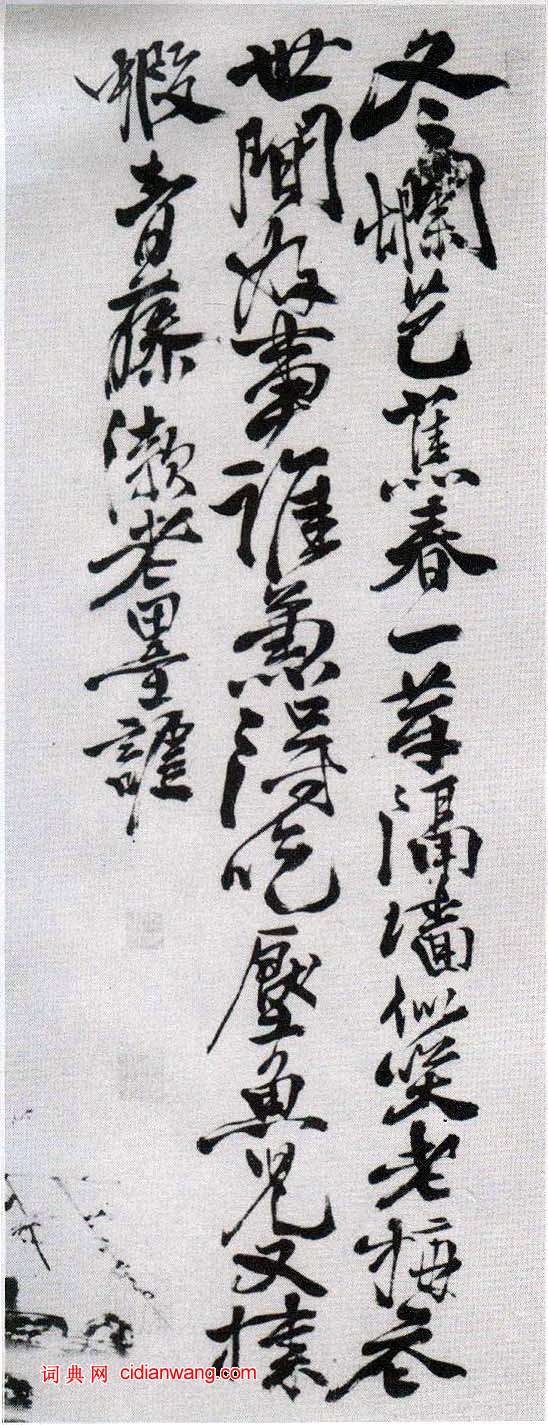 冬爛芭蕉春一芽隔墻似笑老梅花
世間好事誰兼得吃壓魚兒又揀
蝦青藤漱老墨謔
词典网 cidianwang.com